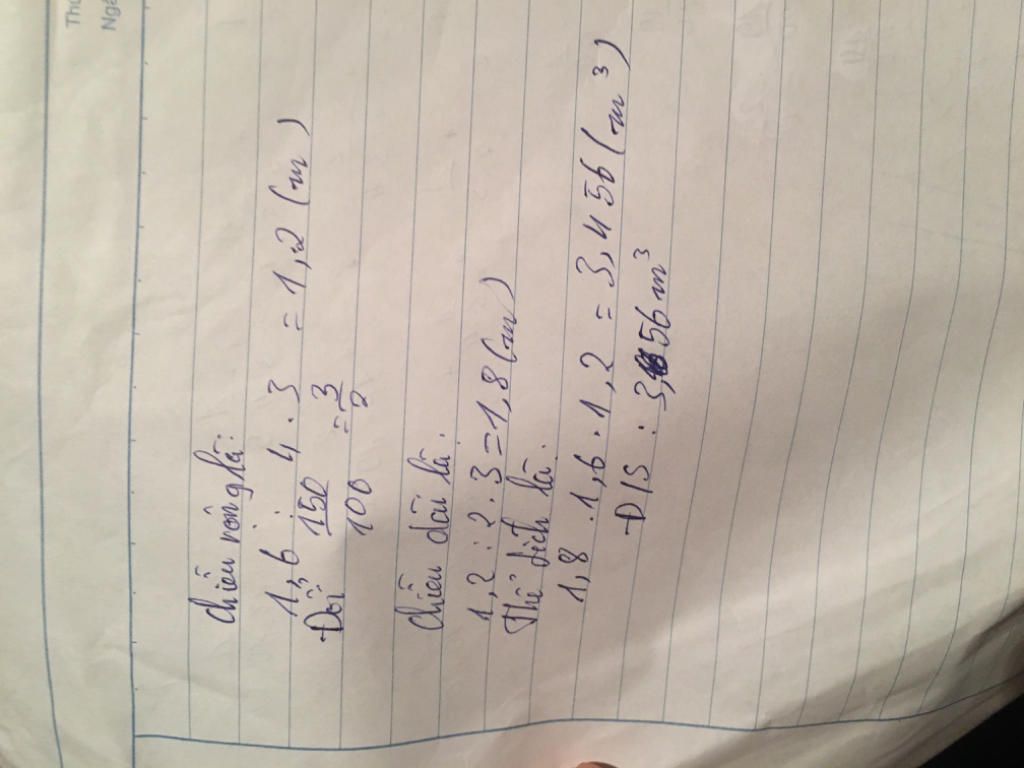 Thứ
Ngà
Chiều rộng là:
1,6 : 4 . 3 = 1,2 (m)
Đổi 150/100 = 3/2
Chiều dài là:
1,2 : 2 . 3 = 1,8 (m)
Thể tích là:
1,8 . 1,6 . 1,2 = 3,456 (m³)
Đ/S : 3,456 m³